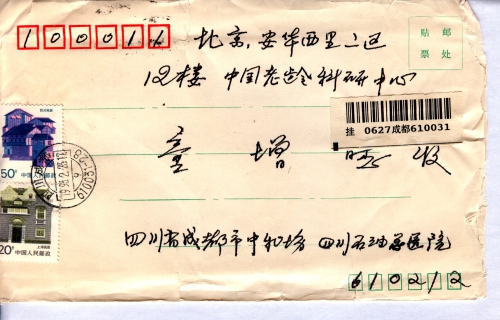 100011
北京,安华西里二区
贴邮
票处
12楼 中国老龄科研中心
挂 0627成都610031
童 增 收
50分 中国人民邮政
20分
中国人民邮政
四川省成都市中和场 四川石油总医院
610212